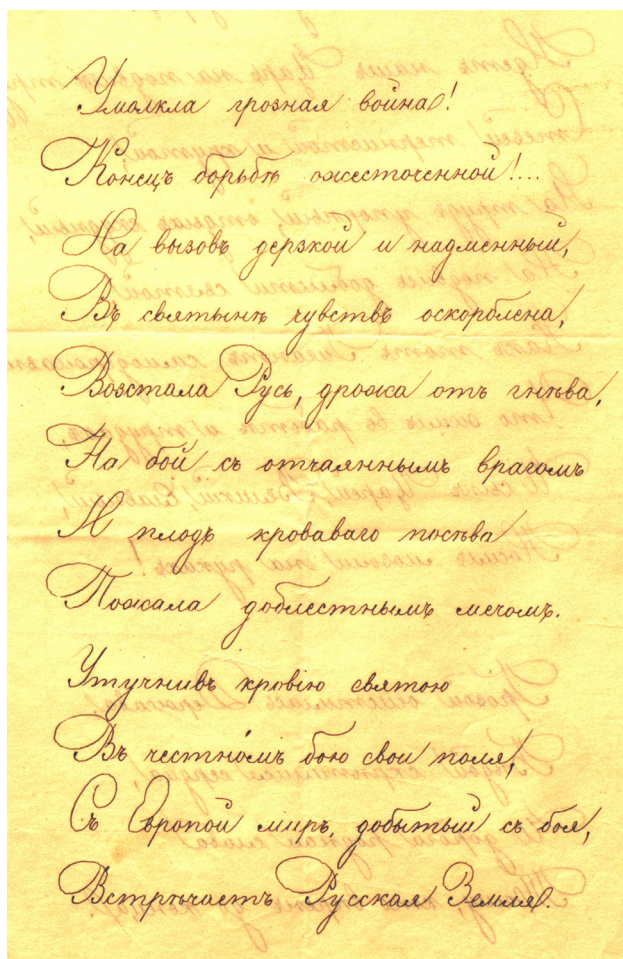 Умолкла грозная война!
Конецъ борьбѣ ожесточенной!...
На вызовъ дерзкой и надменный,
Въ святынѣ чувствъ оскорблена,
Возстала Русь, дрожа отъ гнѣва,
На бой съ отчаяннымъ врагомъ
И плодъ кроваваго посѣва
Пожала доблестнымъ мечомъ.
Утучнивъ кровію святою
Въ честномъ бою свои поля,
Съ Европой миръ, добытый съ боя,
Встрѣчаетъ Русская Земля.